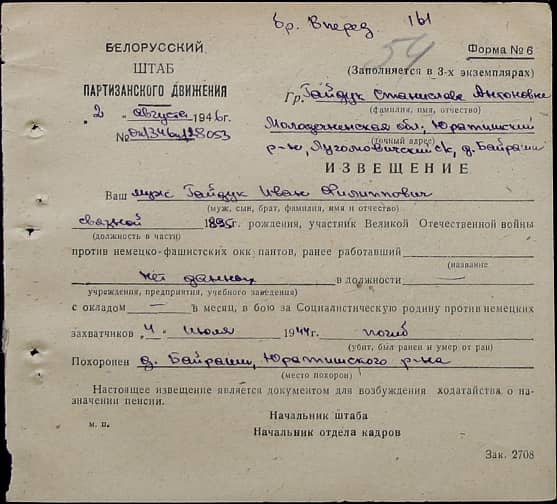 бр. Вперед 161
54
БЕЛОРУССКИЙ
ШТАБ
ПАРТИЗАНСКОГО ДВИЖЕНИЯ
„2 " августа 1946г.
№ 028053
Форма № 6
(Заполняется в 3-х экземплярах)
Гр. Гайдук Станислава Антоновна
(фамилия, имя, отчество)
Молодечненская обл, Юратишский
(точный адрес)
р-н, Лугомовичский с/с, д. Байраши
ИЗВЕЩЕНИЕ
Ваш муж Гайдук Иван Филиппович
(муж, сын, брат, фамилия, имя и отчество)
связной 1895г. рождения, участник Великой Отечественной войны
(должность в части)
против немецко-фашистских окк пантов, ранее работавший
(название
нет данных в должности
учреждения, предприятия, учебного заведения)
с окладом в месяц, в бою за Социалистическую родину против немецких
захватчиков „4 " июля 1944г. погиб
(убит, был ранен и умер от ран)
Похоронен д. Байраши, Юратишского р-на
(место похорон)
Настоящее извещение является документом для возбуждения ходатайства о на-
значении пенсии.
Начальник штаба
м. п.
Начальник отдела кадров
Зак. 2708